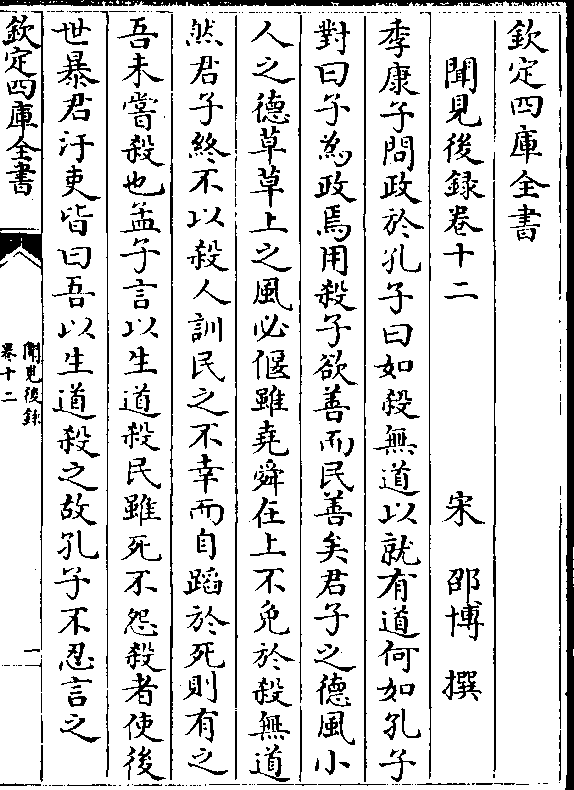 欽定四庫全書
聞見後録卷十二
宋 邵博 撰
季康子問政於孔子曰如殺無道以就有道何如孔子
對曰子為政焉用殺子欲善而民善矣君子之德風小
人之德草草上之風必偃雖堯舜在上不免於殺無道
然君子終不以殺人訓民之不幸而自蹈於死則有之
吾未嘗殺也孟子言以生道殺民雖死不怨殺者使後
世暴君汙吏皆曰吾以生道殺之故孔子不忍言之
欽定四庫全書
聞見後録
卷十二
一